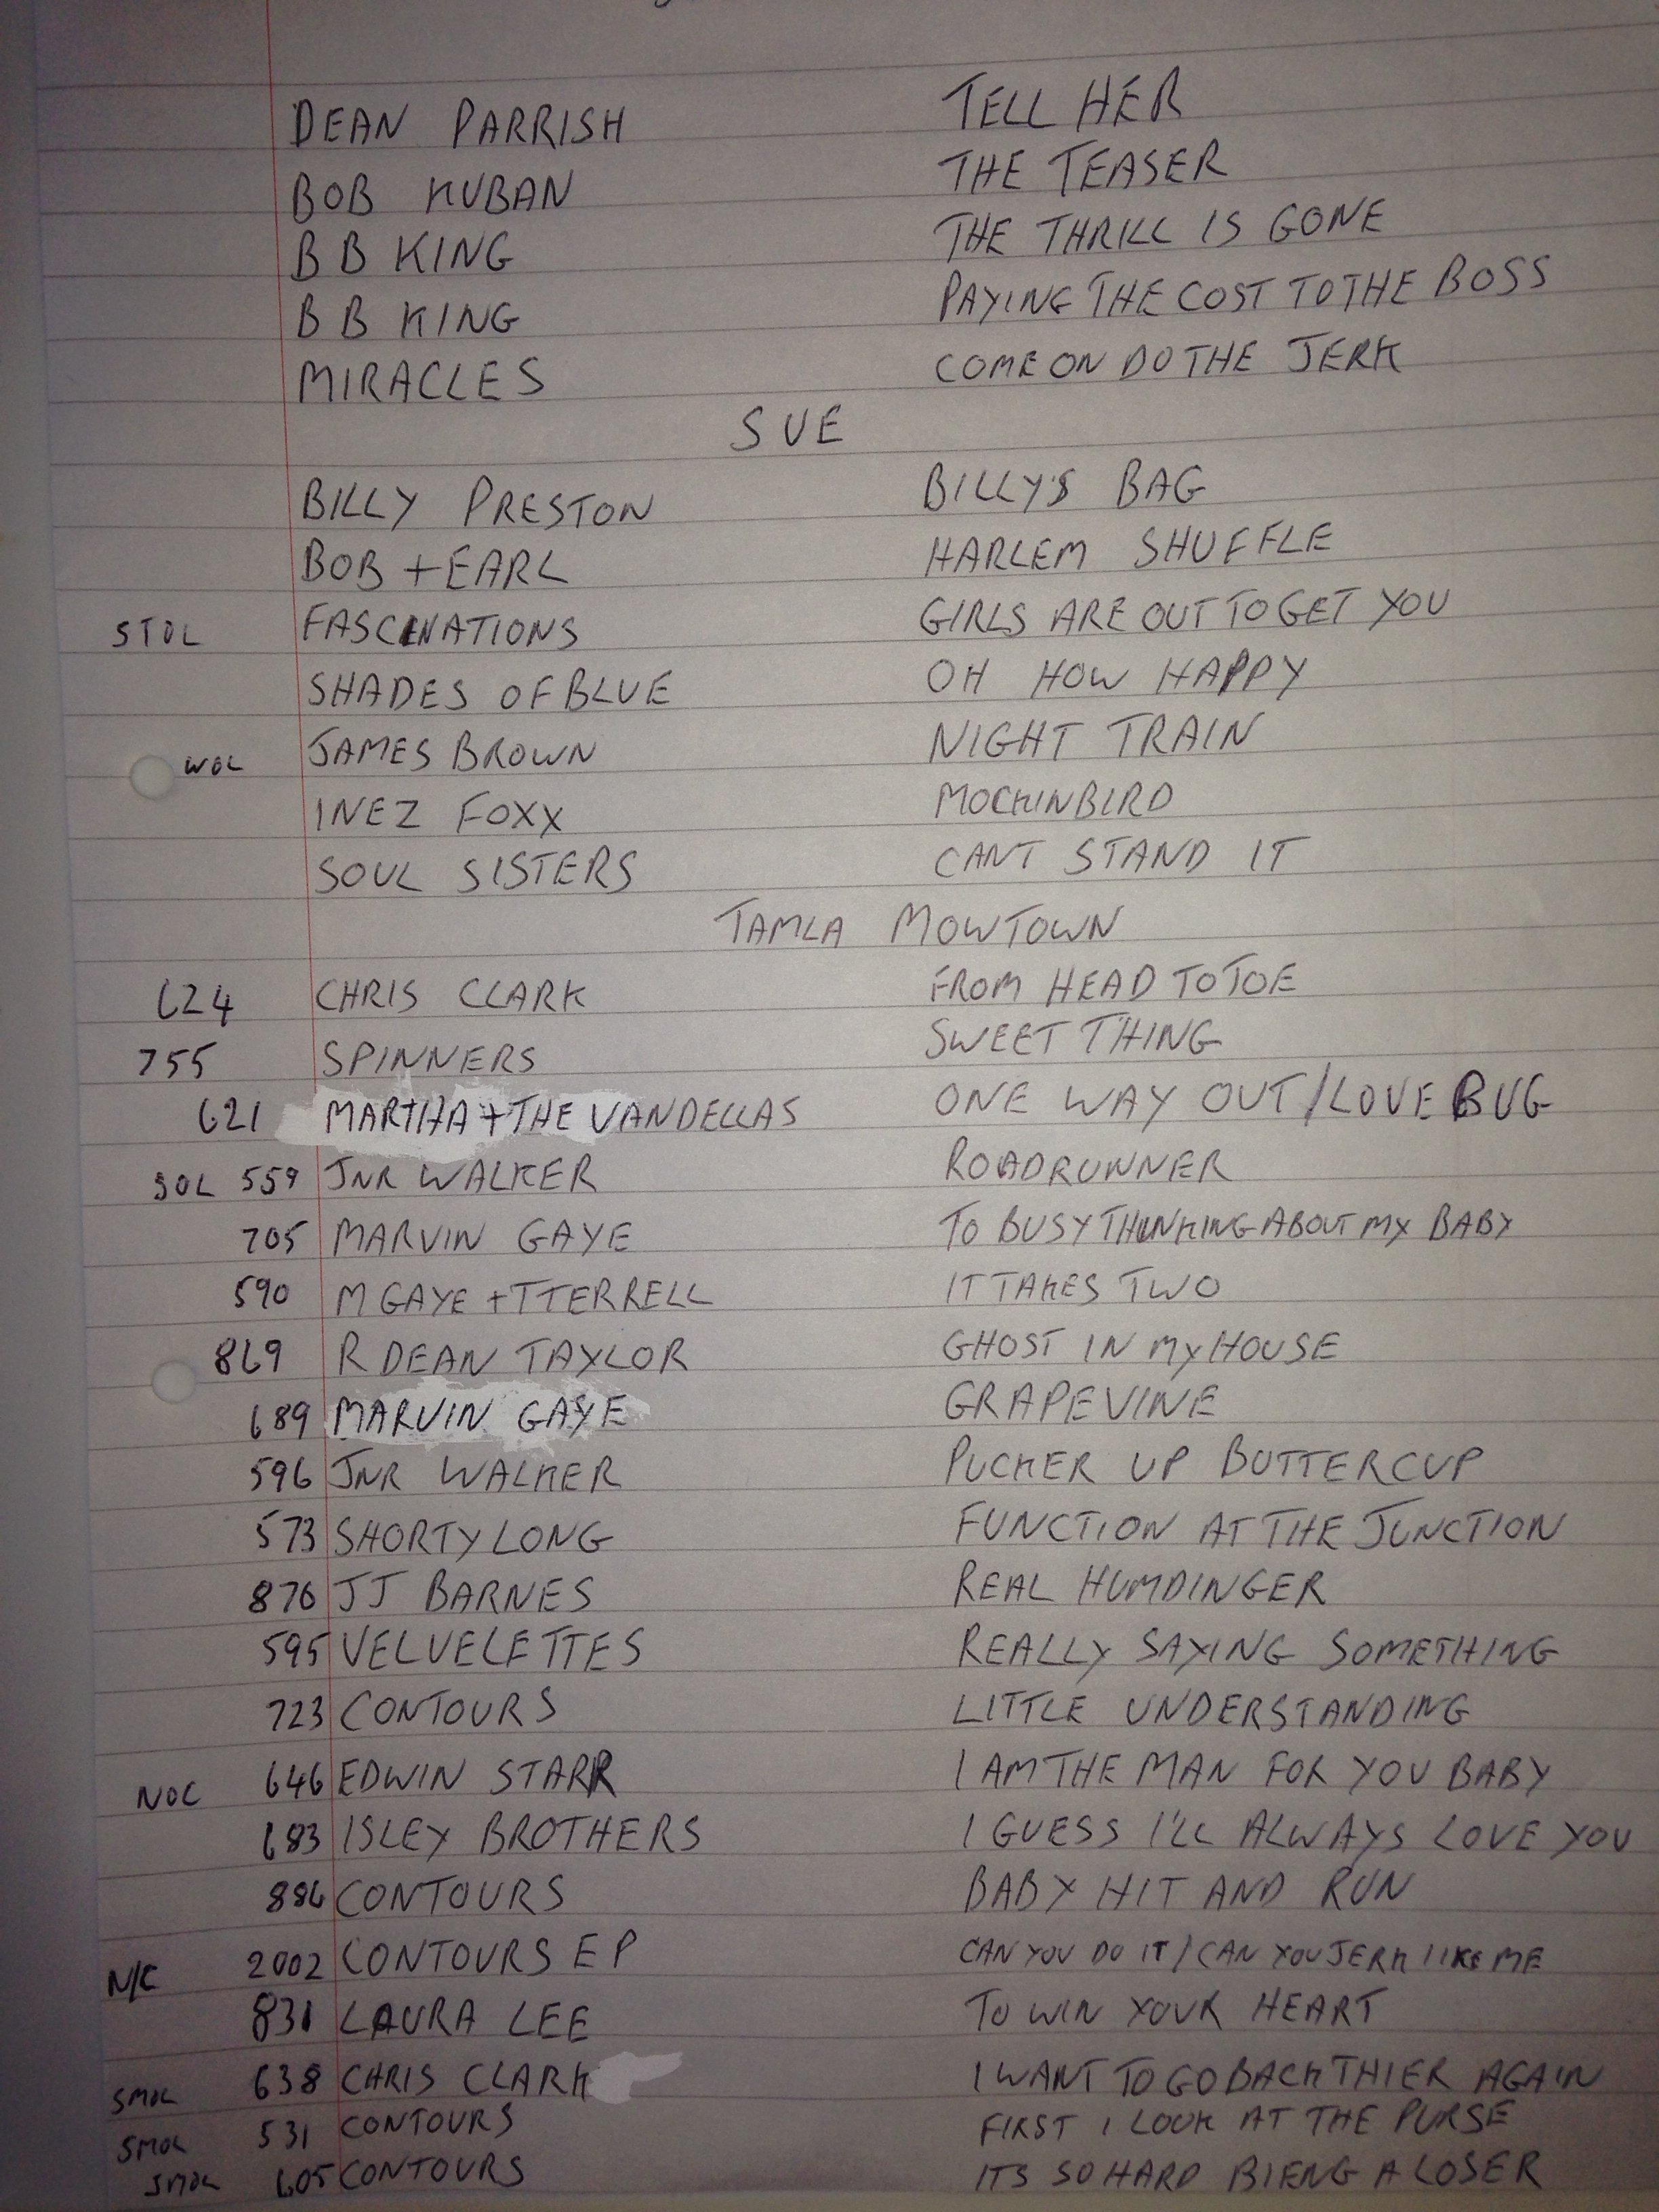 DEAN PARRISH TELL HER
BOB KUBAN THE TEASER
B B KING THE THRILL IS GONE
B B KING PAYING THE COST TO THE BOSS
MIRACLES COME ON DO THE JERK
SUE
BILLY PRESTON BILLY'S BAG
BOB + EARL HARLEM SHUFFLE
STOL FASCINATIONS GIRLS ARE OUT TO GET YOU
SHADES OF BLUE OH HOW HAPPY
WOL JAMES BROWN NIGHT TRAIN
INEZ FOXX MOCKINBIRD
SOUL SISTERS CANT STAND IT
TAMLA MOWTOWN
624 CHRIS CLARK FROM HEAD TO TOE
755 SPINNERS SWEET THING
621 MARTHA + THE VANDELLAS ONE WAY OUT / LOVE BUG
SOL 559 JNR WALKER ROADRUNNER
705 MARVIN GAYE TO BUSY THINKING ABOUT MY BABY
590 M GAYE + T TERRELL IT TAKES TWO
869 R DEAN TAYLOR GHOST IN MY HOUSE
689 MARVIN GAYE GRAPEVINE
596 JNR WALKER PUCKER UP BUTTERCUP
573 SHORTY LONG FUNCTION AT THE JUNCTION
870 JJ BARNES REAL HUMDINGER
595 VELVELETTES REALLY SAYING SOMETHING
723 CONTOURS LITTLE UNDERSTANDING
NOC 646 EDWIN STARR I AM THE MAN FOR YOU BABY
683 ISLEY BROTHERS I GUESS I'LL ALWAYS LOVE YOU
886 CONTOURS BABY HIT AND RUN
N/C 2002 CONTOURS E P CAN YOU DO IT / CAN YOU JERK LIKE ME
831 LAURA LEE TO WIN YOUR HEART
SMOL 638 CHRIS CLARK I WANT TO GO BACK THIER AGAIN
SMOL 531 CONTOURS FIRST I LOOK AT THE PURSE
SMOL 605 CONTOURS ITS SO HARD BIENG A LOSER